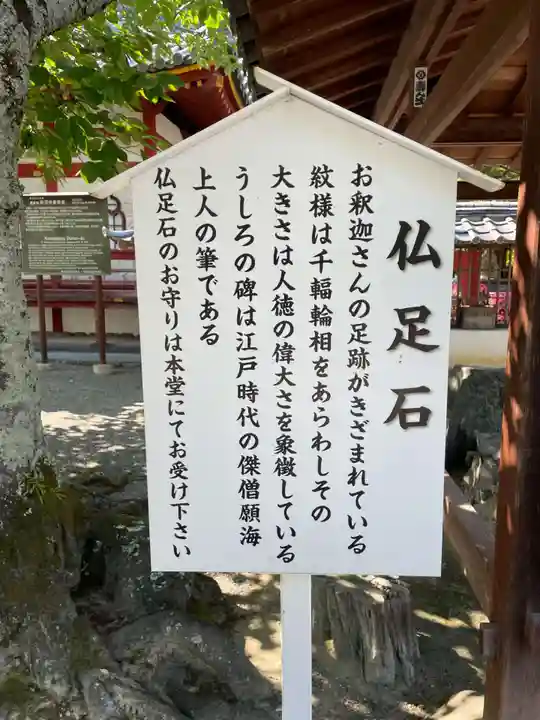 仏足石
お釈迦さんの足跡がきざまれている
紋様は千輻輪相をあらわしその
大きさは人徳の偉大さを象徴している
うしろの碑は江戸時代の傑僧願海
上人の筆である
仏足石のお守りは本堂にてお受け下さい